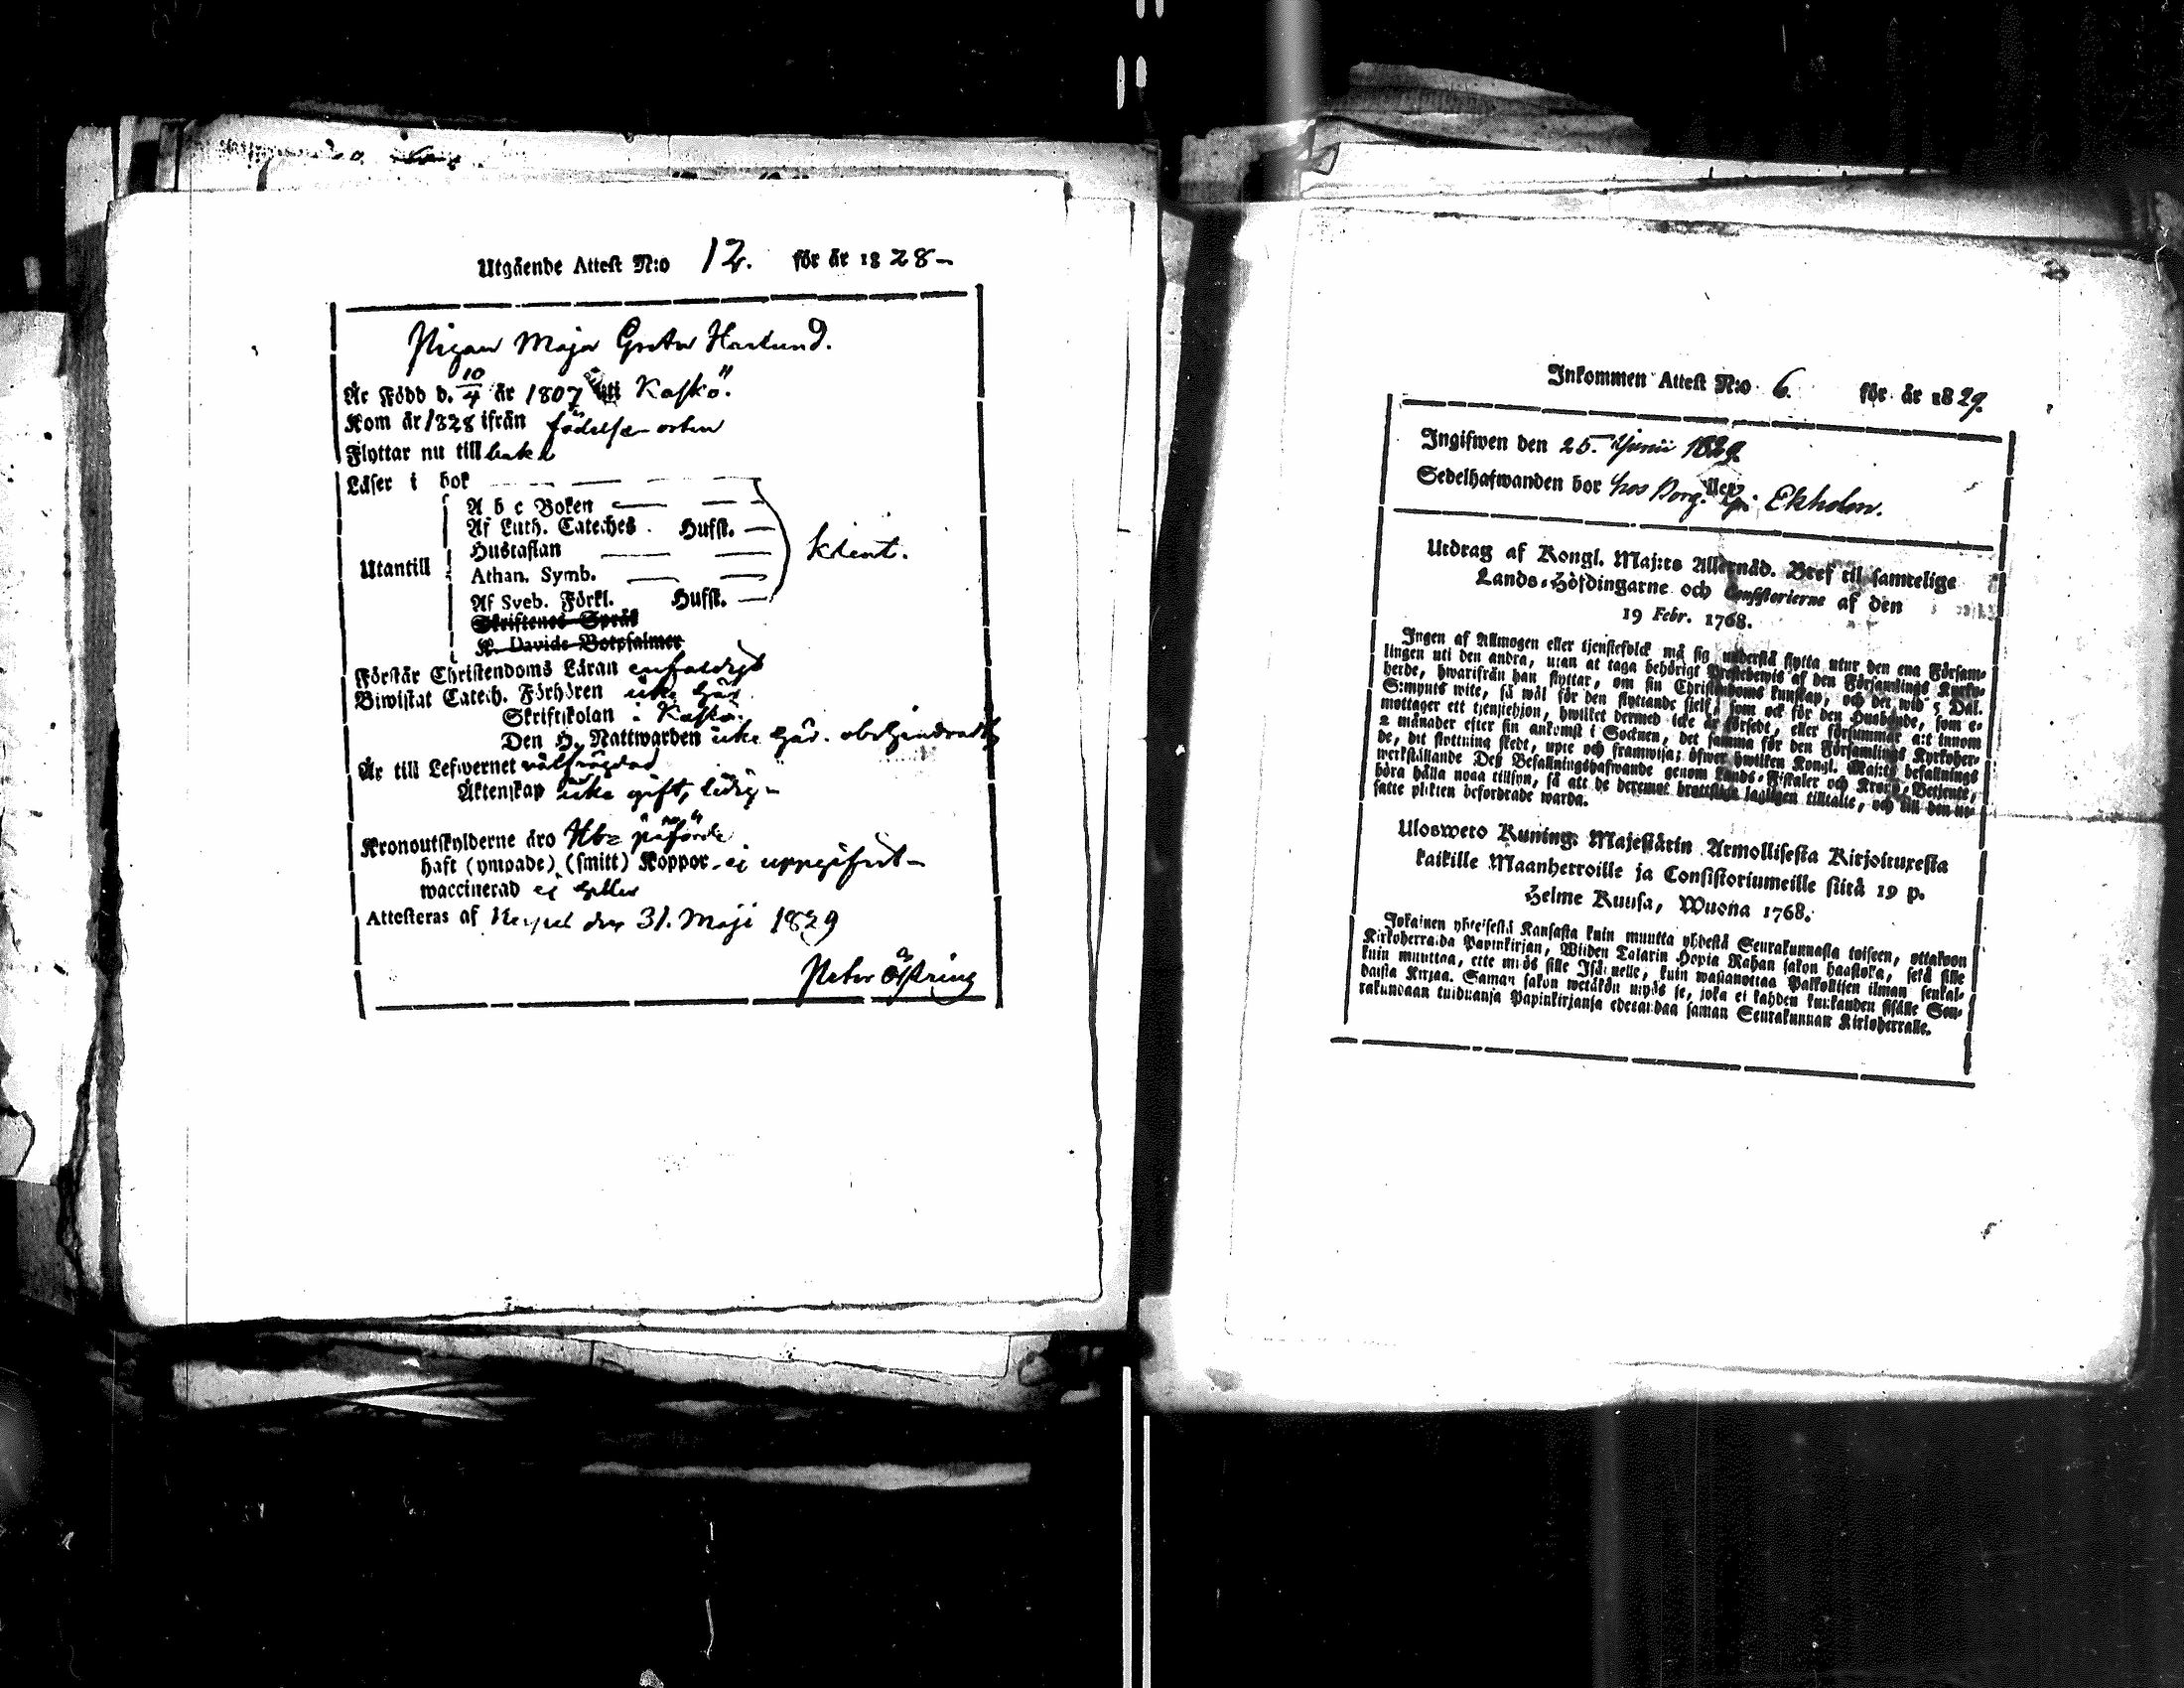 Utgående Attest N:o 12. för år 1828-
Pigan Maja Greta Haslund.
Är Född d. 10/4 år 1807 uti Kaskö.
Kom år 1828 ifrån födelse orten
Flyttar nu till baka
Läser i bok
A b c Boken
Af Luth. Cateches. Hufst.
Hustaflan
Utantill
Athan. Symb.
klent.
Af Sveb. Förkl. Hufst.
Skriftenes Språk
K. Davids Botpsalmer
Förstår Christendoms Läran enfaldigt
Biwistat Catech. Förhören icke här
Skriftskolan i Kaskö.
Den H. Nattwarden icke här. obehindrad
Är till Lefwernet välfrägdad
Äktenskap icke gift, ledig-
Kronoutskylderne äro påförde
haft (ympade) (smitt) Koppor ej uppgifvit-
waccinerad ej heller
Attesteras af den 31. Maji 1829
Peter Östring
Inkommen Attest N:o 6. för år 1829.
Ingifwen den 25. Junii 1829.
Sedelhafwanden bor hos Borg. Ekholm.
Utdrag af Kongl. Maj:ts Allernåd. Bref til samtelige
Lands-Höfdingarne och Consistorierne af den
19 Febr. 1768.
Ingen af Allmogen eller tjenstefolck må sig understå flytta utur den ena Försam-
lingen uti den andra, utan at taga behörigt Prestebewis af den Församlings Kyrko-
herde, hwarifrån han flyttar, om sin Christendoms kunskap, och det wid 5 Dal.
S:mynts wite, så wäl för den flyttande sjelf, som ock för den Husbonde, som e-
mottager ett tjenstehjon, hwilket dermed icke är försedt, eller försummar at innom
2 månader efter sin ankomst i Socknen, det samma för den Församlings Kyrkoher-
de, dit flyttning skedt, upte och framwisa; öfwer hwilken Kongl. Maj:ts befallnings
werkställande Deß Befallningshafwande genom Lands-Fiskaler och Krono-Betjente,
böra hålla noga tillsyn, så att de deremot brottslige lagligen tilltalte, och till den ut-
satte plikten befordrade warda.
Ulosweto Kuning: Majestätin Armollisesta Kirjoituxesta
kaikille Maanherroille ja Consistoriumeille siitä 19 p.
Helme Kuusa, Wuona 1768.
Jokainen yhteisestä Kansasta kuin muutta yhdestä Seurakunnasta toiseen, ottakoon
Kirkoherralda Papinkirjan, Wiiden Talarin Hopia Rahan sakon haastolla, sekä sille
kuin muuttaa, ette myös sille Isännelle, kuin wastanottaa Palkollisen ilman senkal-
daista Kirjaa. Saman sakon wetäkön myös se, joka ei kahden kuukauden sisälle Seu-
rakundaan tulduansa Papinkirjansa edeskandaa saman Seurakunnan Kirkoherralle.